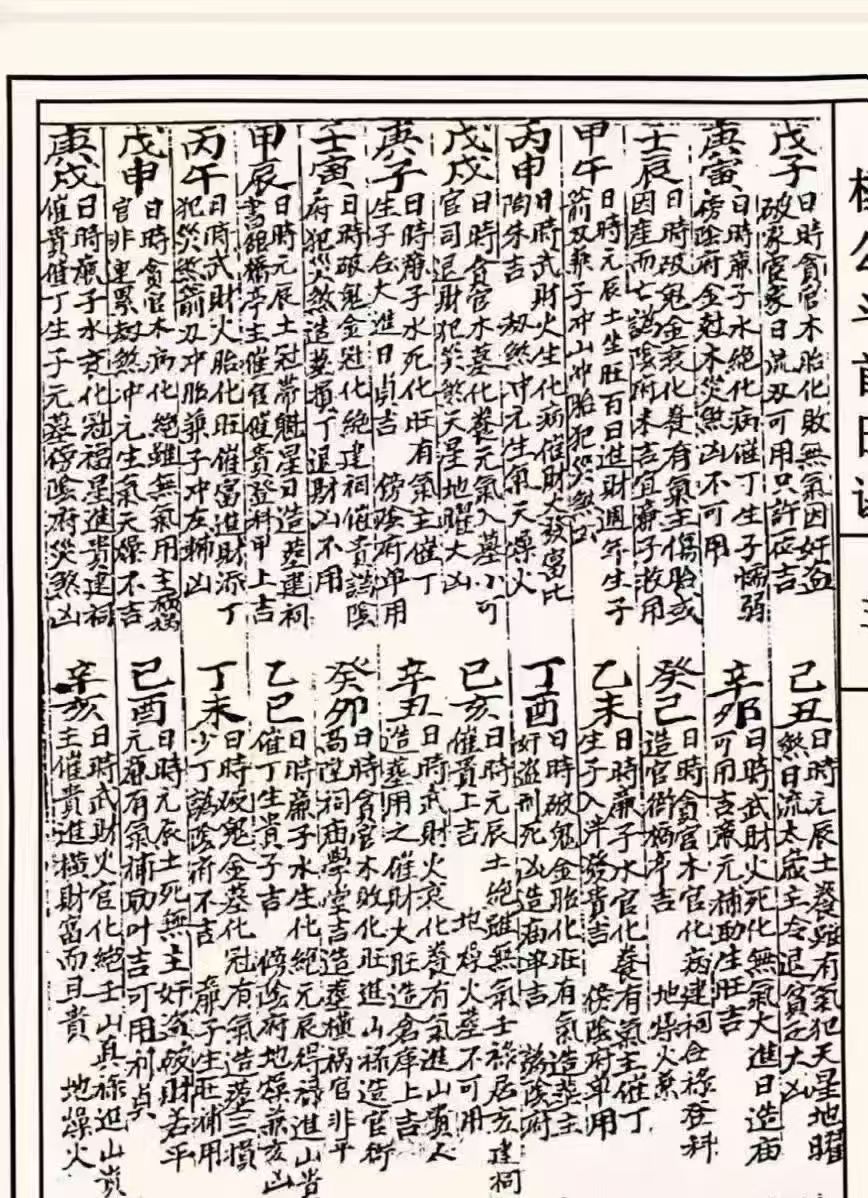 楊公斗首日課
戊子
日時貪官木胎化敗無氣因奸盗
破家官家日流刃可用只許一位吉
庚寅
日時廉子水絕化病催丁生子懦弱
傍陰府金尅木災煞凶不可用
壬辰
日時破鬼金衰化養有氣主傷胎或
因産而亡謅陰府未吉宜廉子救用
甲午
日時元辰土生旺百日進財週年生子
箭刃兼子冲山冲胎犯災煞凶
丙申
日時武財火生化病催財大發富比
陶朱吉 刼煞冲元生氣天燥火
戊戌
日時貪官木墓化養元氣入墓小可
官司退財犯災煞天星地曜大凶
庚子
日時廉子水死化旺有氣主催丁
生子合大進日貞吉 傍陰府單用
壬寅
日時破鬼金冠化絕建祠催貴謅陰
府犯災煞造墓損丁退財凶不用
甲辰
日時元辰土冠帶魁星日造葬建祠
書館橋亭主催官催貴登科甲上吉
丙午
日時武財火胎化旺催富進財添丁
犯災煞箭刃冲胎兼子冲左輔凶
戊申
日時貪官木病化絕雖無氣用主病
官非重累刼煞冲元生氣天燥不吉
庚戌
日時廉子水衰化冠福星進貴建祠
催貴催丁生子元墓傍陰府災煞凶
己丑
日時元辰土養雖有氣犯天星地曜
煞日流太歲主冷退貧乏大凶
辛卯
日時武財火死化無氣大進日造庙
可用吉廉元補助生旺吉
癸巳
日時貪官木官化病建祠合祿登科
造官衙橋亭吉 地燥火兼
乙未
日時廉子水官化養有氣主催丁
生子入泮發貴吉 傍陰府單用
丁酉
日時破鬼金胎化旺有氣造葬主
奸盗刑死凶造庙宇吉 謅陰府
己亥
日時元辰土絕雖無氣壬祿居亥建祠
催貴上吉 地燥火墓不可用
辛丑
日時武財火衰化養有氣進山貴人
造葬用之催財大旺造倉庫上吉
癸卯
日時貪官木敗化旺進山祿造官衙
高陞祠庙學堂吉造葬橫禍官非平
乙巳
日時廉子水生化絕元辰得祿進山貴
催丁生貴子吉 傍陰府地燥兼亥山
丁未
日時破鬼金墓化冠有氣造葬三損
少丁謅陰府不吉 廉子生旺補用
己酉
日時元辰土死無主奸盗破財若平
元廉有氣補助叶吉可用利貞
辛亥
日時武財火官化絕壬山真祿進山貴
主催貴進橫財富而且貴 地燥火